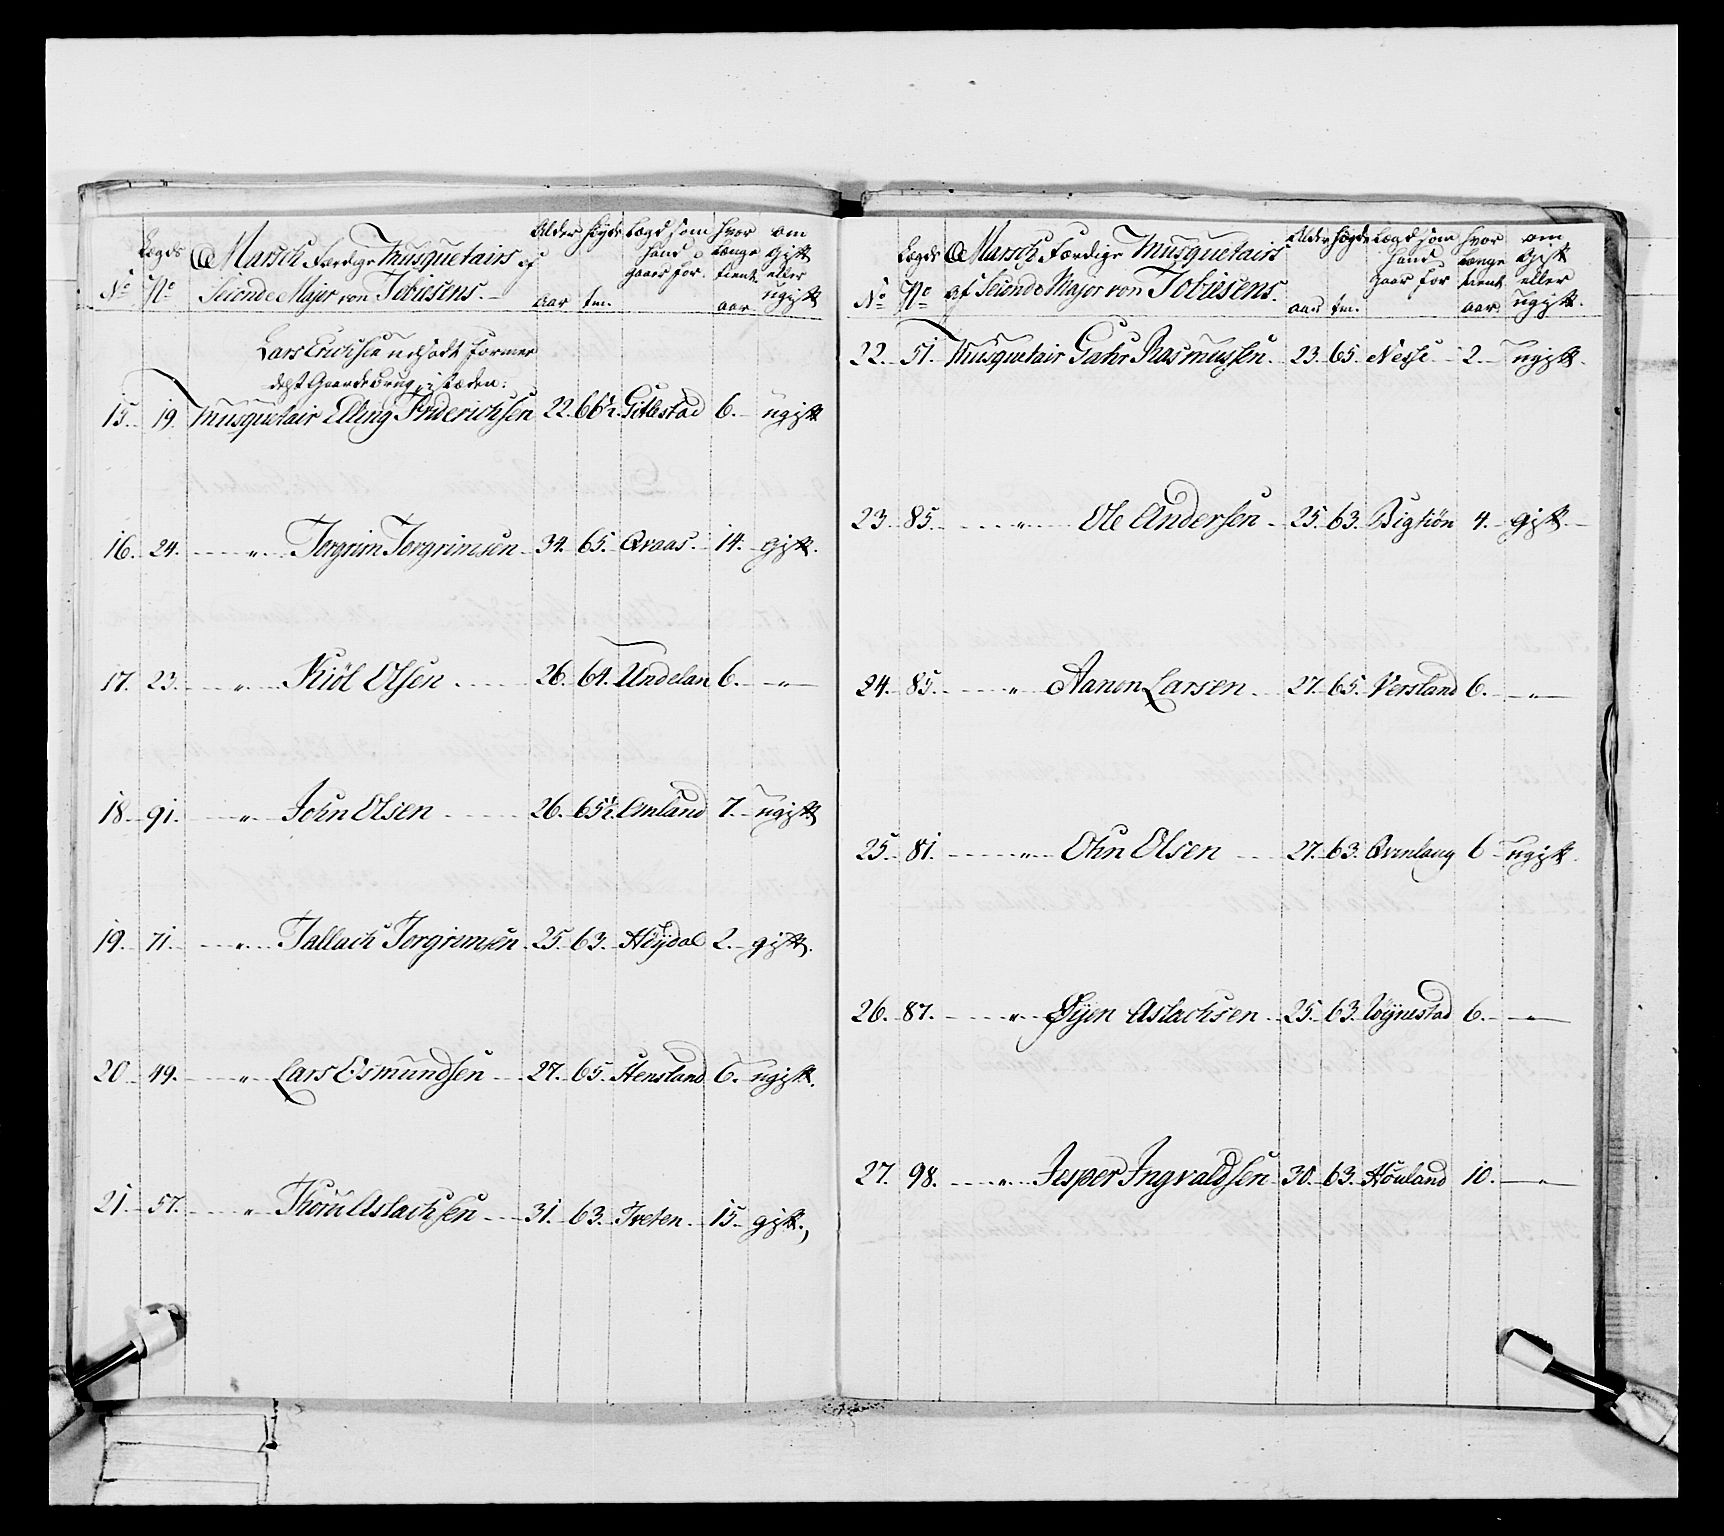 No Legds No Marsch Færdige Musquetairs af Seconde Major von Tobiesens. Alder aar Høyde tm. Legd som hand gaar for. hvor længe tient aar om gift eller ugift
Lars Erichsen udsadt formedelst Gaardebrug, i stæden:
15. 19. Musquetair Elling Friderichsen 22. 66½. Gitlestad 6. ugift
16. 24. " Torgrim Torgrimsen 34. 65. Qvaas. 14. gift.
17. 23. " Kiøl Olsen 26. 64. Undelan 6. "
18. 91. " John Olsen 26. 65½. Omland 7. ugift
19. 71. " Tallach Torgrimsen 25. 63. Høydal 2. gift.
20. 49. " Lars Esmundsen 27. 65. Hensland 6. ugift.
21. 57. " Thom Aslachsen 31. 63. Tveten. 15. gift.,
No Legds No Marsch Færdige Musquetairs af Seconde Major von Tobiesens. Alder aar høyde tm. Legd som hand gaar for hvor længe tient aar om gift eller ugift.
22. 51. Musquetair Gahr Rasmussen. 23. 65. Nesse 2. ugift.
23. 85. " Ole Andersen 25. 63. Bigtiøn 4. gift.
24. 85. " Aanon Larsen. 27. 65. Versland 6. "
25. 81. " Ohn Olsen 27. 63. Qvinlaug 6 ugift.
26. 87. " Øijen Aslachsen 25. 63. Vøynestad 6. "
27. 98. " Jesper Ingvaldsen 30. 63. Houland 10. "